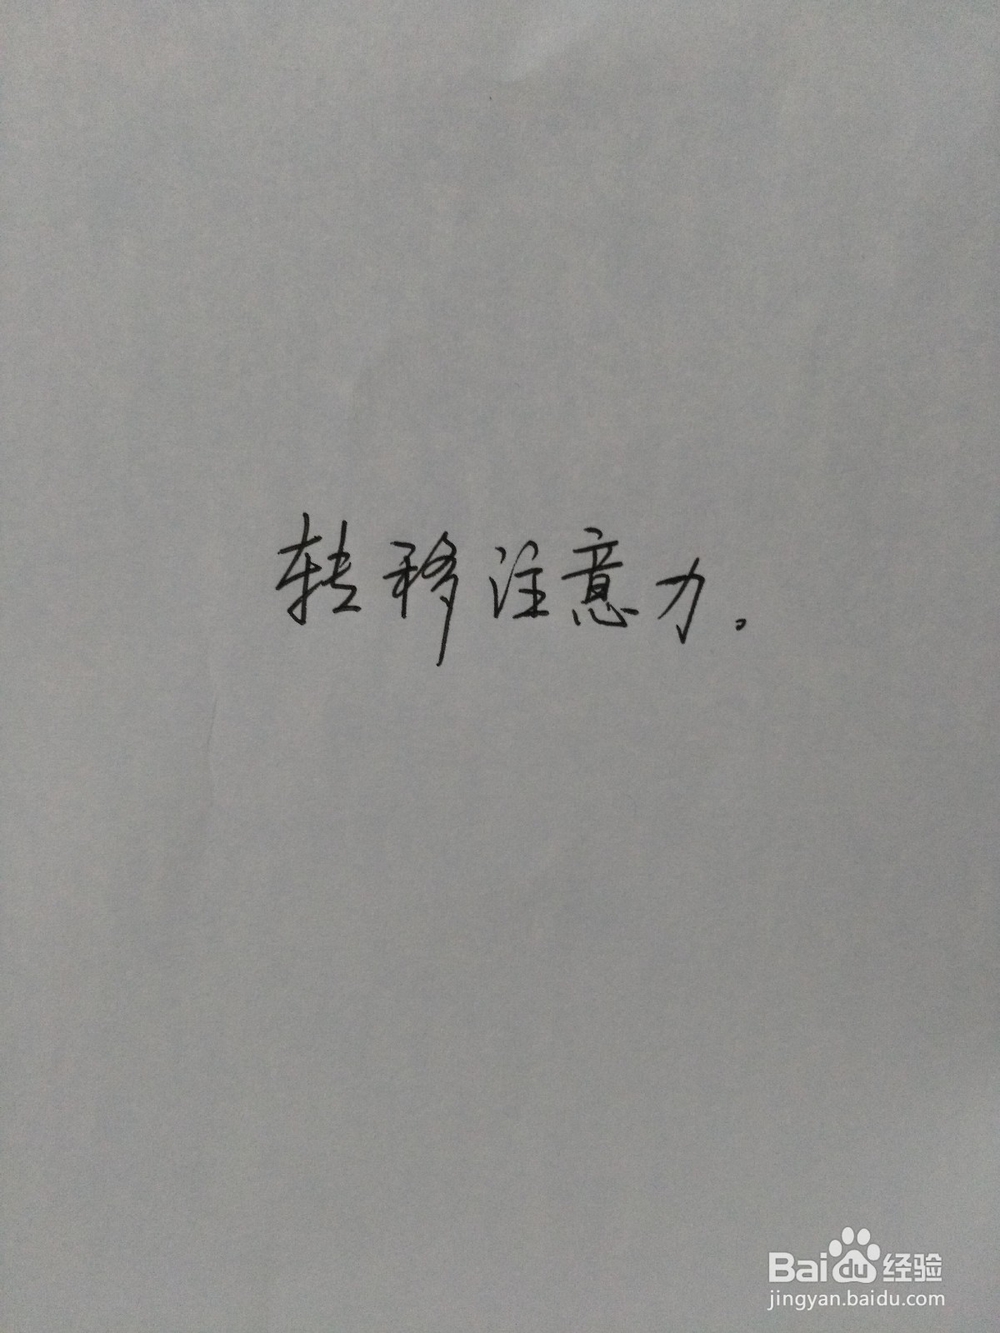 转移注意力。
Baidu 经验
jingyan.baidu.com